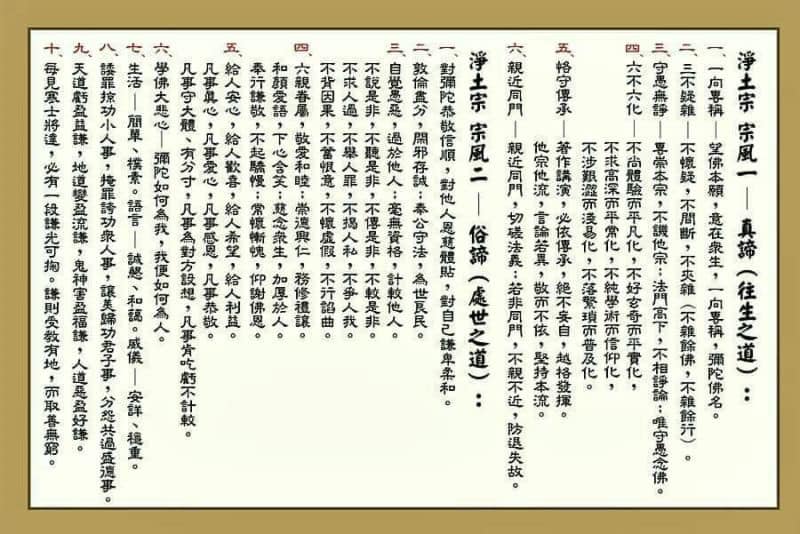 淨土宗 宗風一 — 真諦（往生之道）：
一、一向專稱—望佛本願，意在衆生，一向專稱，彌陀佛名。
二、三不疑雜—不懷疑，不間斷，不夾雜（不雜餘佛，不雜餘行）。
三、守愚無諍—專崇本宗，不譏他宗：法門高下，不相諍論；唯守愚念佛。
四、六不六化—不尚體驗而平凡化，不好玄奇而平實化，
不求高深而平常化，不純學術而信仰化，
不涉艱澀而淺易化，不落繁瑣而普及化。
五、恪守傳承—著作講演，必依傳承，絕不妄自，越格發揮。
他宗他流，言論若異，敬而不依，堅持本流。
六、親近同門—親近同門，切磋法義：若非同門，不親不近，防退失故。
淨土宗 宗風二 — 俗諦（處世之道）：
一、對彌陀恭敬信順，對他人恩慈體貼，對自己謙卑柔和。
二、敦倫盡分，閑邪存誠：奉公守法，為世良民。
三、自覺愚惡，過於他人：毫無資格，計較他人。
不說是非，不聽是非，不傳是非，不較是非。
不求人過，不舉人罪，不揭人私，不爭人我。
不背因果，不蓄恨意，不懷虛假，不行諂曲。
四、六親眷屬，敬愛和睦：崇德興仁，務修禮讓。
和顏愛語，下心含笑：慈念衆生，加厚於人。
奉行謙敬，不起驕慢：常懷慚愧，仰謝佛恩。
五、給人安心，給人歡喜，給人希望，給人利益。
凡事真心，凡事愛心，凡事感恩，凡事恭敬。
凡事守大體、有分寸，凡事為對方設想，凡事肯吃虧不計較。
六、學佛大悲心—彌陀如何為我，我便如何為人。
七、生活—簡單、樸素。語言—誠懇、和藹。威儀—安詳、穩重。
八、諉罪掠功小人事，掩罪誇功衆人事，讓美歸功君子事，分怨共過盛德事。
九、天道虧盈益謙，地道變盈流謙，鬼神害盈福謙，人道惡盈好謙。
十、每見寒士將達，必有一段謙光可掬。謙則受教有地，而取善無窮。